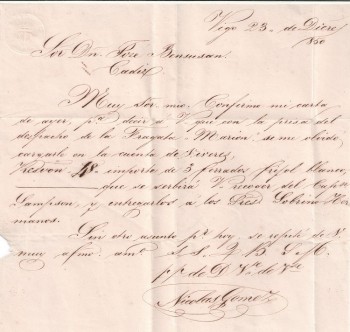 Vigo 23 de Dicre
850
Sor Dn Jose Bensusan.
Cadiz
Muy Sor mio. Confirma mi carta
de ayer, pa decir a V. que con la prisa del
despacho de la Fragata Marion se me olvido
cargarle en la cuenta de viveres,
importe de 3 ferrados frijol blanco,
que se serbirá V. recover del Capn
Sampson, y entregarlos a los Sres Sobrino Her
manos.
Sin otro asunto pr hoy, se repite de V.
muy afmo. amo
S. S. Q. B. S. M.
pp de
Nicolas Gomez